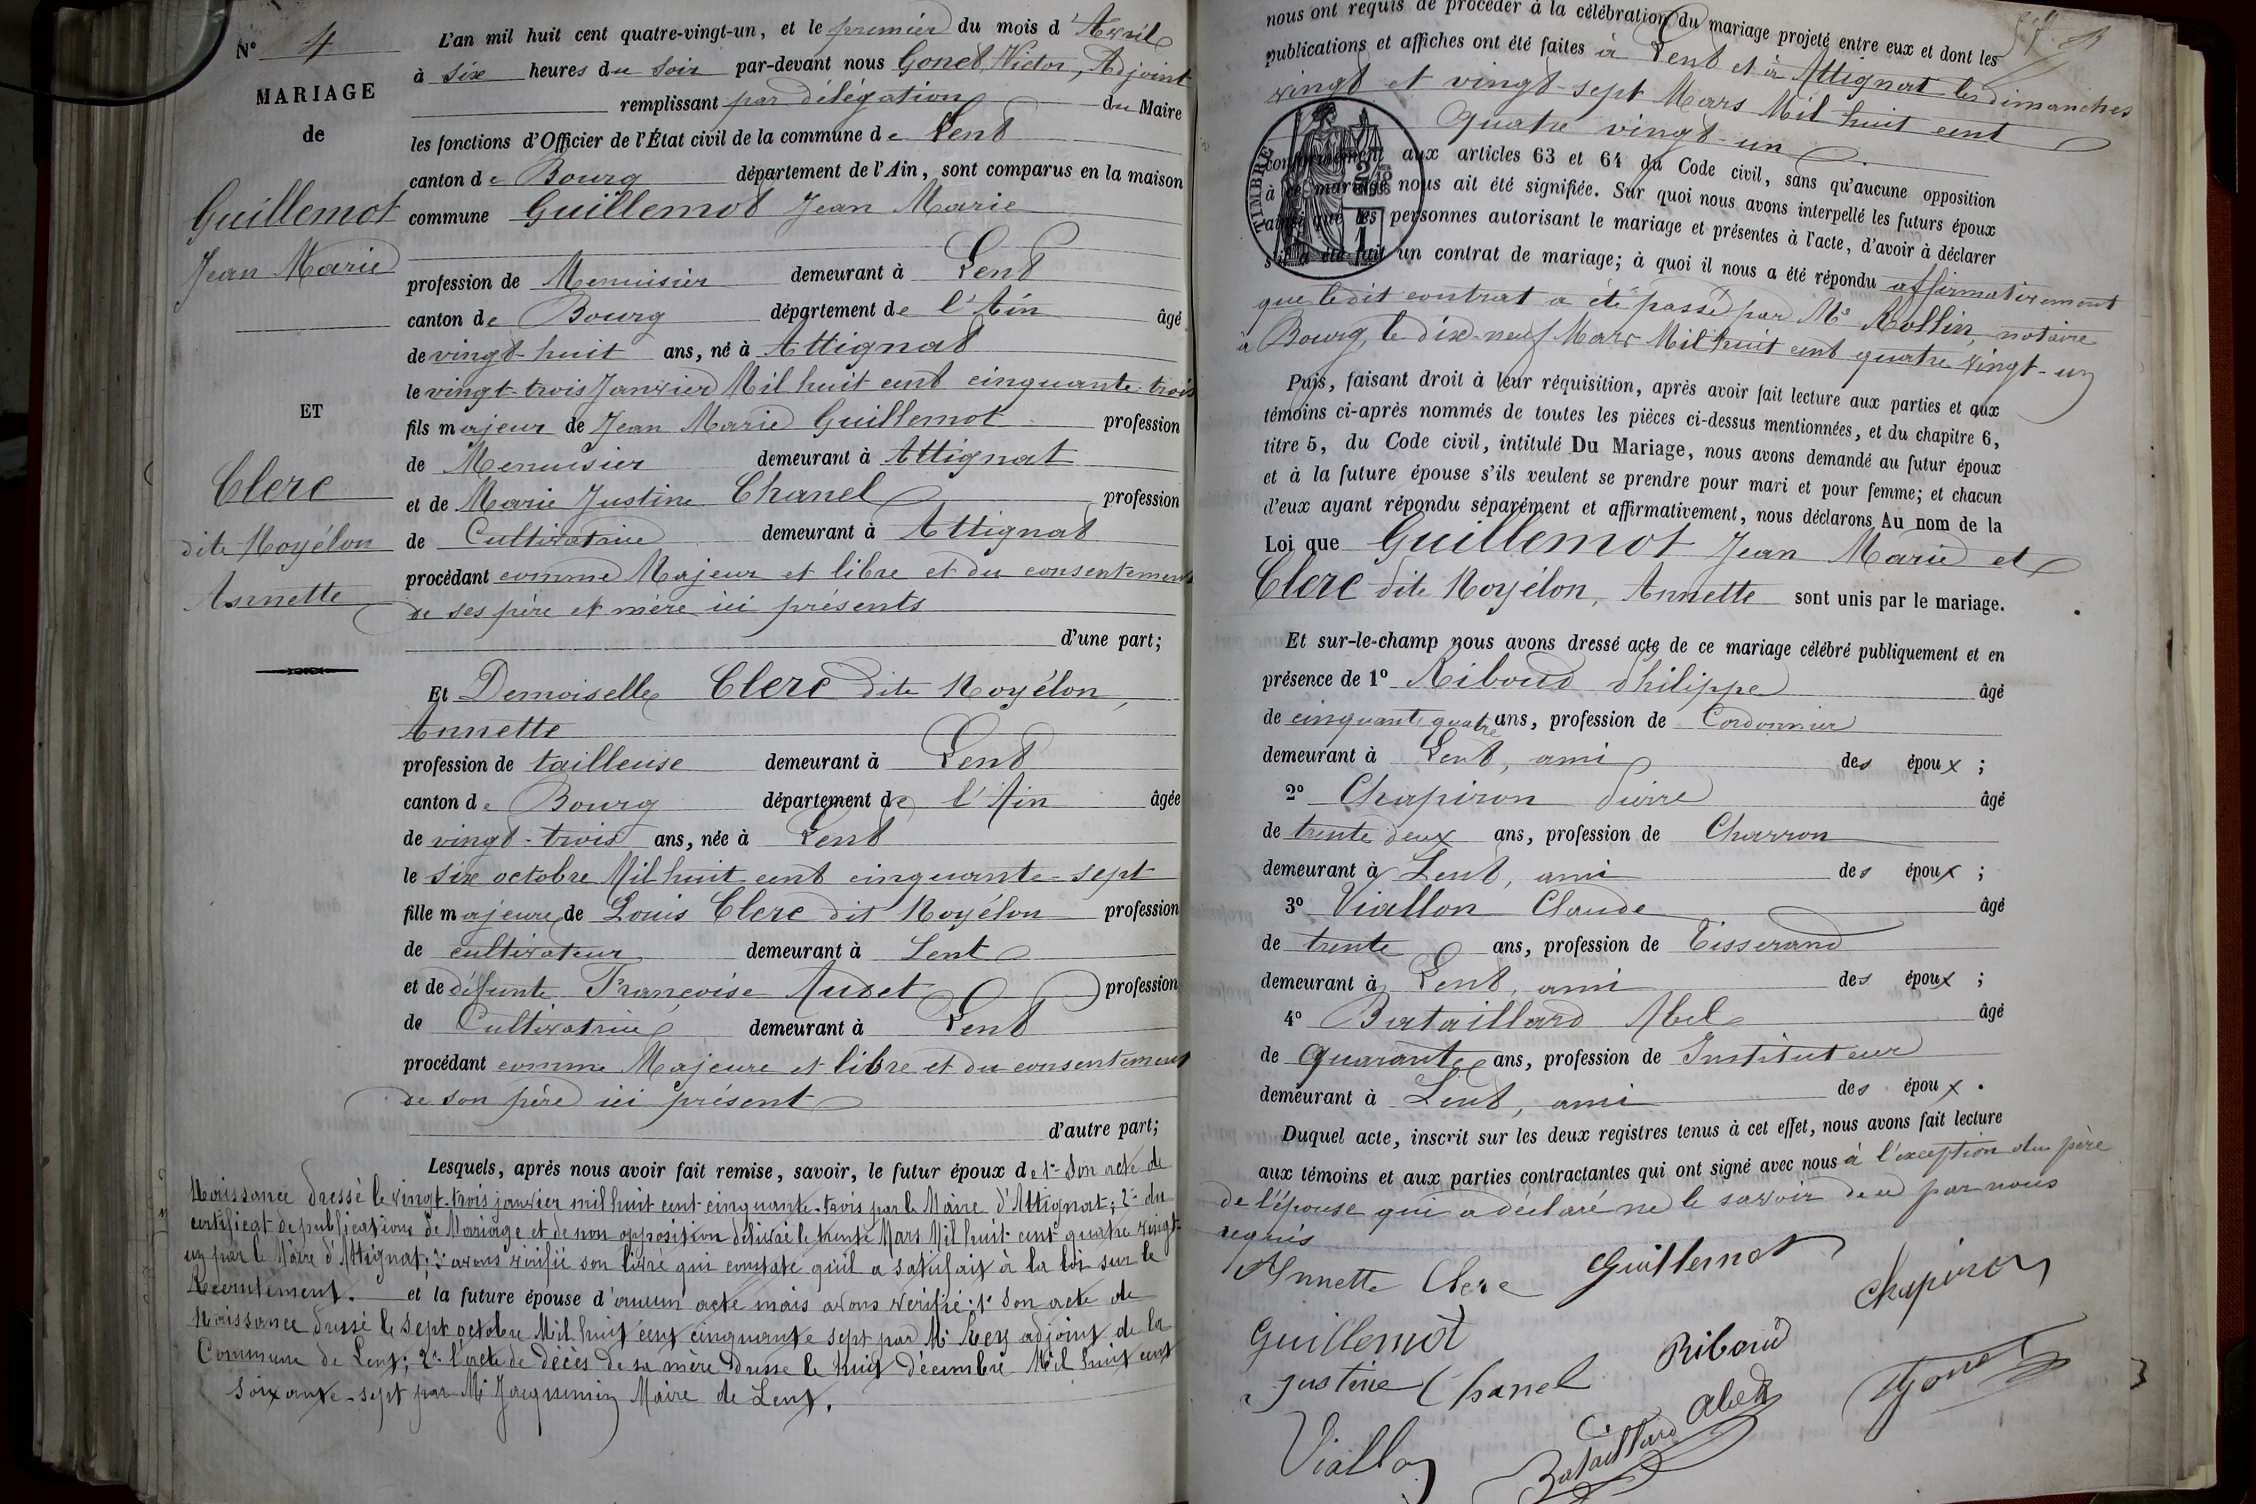 N° 4
MARIAGE
de
Guillemot
Jean Marie
ET
Clerc
dite Noyélon
Annette
L'an mil huit cent quatre-vingt-un, et le premier du mois d'Avril
à six heures du soir par-devant nous Gonet, Victor, Adjoint
remplissant par délégation du Maire
les fonctions d'Officier de l'État civil de la commune de Lent
canton de Bourg département de l'Ain, sont comparus en la maison
commune Guillemot Jean Marie
profession de Menuisier demeurant à Lent
canton de Bourg département de l'Ain âgé
de vingt-huit ans, né à Attignat
le vingt-trois Janvier Mil huit cent cinquante-trois
fils majeur de Jean Marie Guillemot profession
de Menuisier demeurant à Attignat
et de Marie Justine Chanel profession
de Cultivatrice demeurant à Attignat
procédant comme Majeur et libre et du consentement
de ses père et mère ici présents
d'une part;
Et Demoiselle Clerc dite Noyélon,
Annette
profession de tailleuse demeurant à Lent
canton de Bourg département de l'Ain âgée
de vingt-trois ans, née à Lent
le six octobre Mil huit cent cinquante-sept
fille majeure de Louis Clerc dit Noyélon profession
de cultivateur demeurant à Lent
et de défunte Françoise Audet profession
de Cultivatrice demeurant à Lent
procédant comme Majeure et libre et du consentement
de son père ici présent
d'autre part;
Lesquels, après nous avoir fait remise, savoir, le futur époux de 1° Son acte de
Naissance dressé le vingt-trois janvier mil huit cent cinquante-trois par le Maire d'Attignat; 2° du
certificat de publications de Mariage et de non opposition délivré le trente Mars Mil huit cent quatre vingt-
un par le Maire d'Attignat; 3° avons vérifié son livret qui constate qu'il a satisfait à la loi sur le
Recrutement. et la future épouse d'aucun acte mais avons vérifié: 1° Son acte de
Naissance dressé le sept octobre Mil huit cent cinquante sept par Mr Rey adjoint de la
Commune de Lent; 2° l'acte de décès de sa mère dressé le huit Décembre Mil huit cent
soixante-sept par Mr Jacquemin Maire de Lent.
nous ont requis de procéder à la célébration du mariage projeté entre eux et dont les
publications et affiches ont été faites à Lent et à Attignat les dimanches
vingt et vingt-sept Mars Mil huit cent
quatre vingt-un
conformément aux articles 63 et 64 du Code civil, sans qu'aucune opposition
à ce mariage nous ait été signifiée. Sur quoi nous avons interpellé les futurs époux
ainsi que les personnes autorisant le mariage et présentes à l'acte, d'avoir à déclarer
s'il a été fait un contrat de mariage; à quoi il nous a été répondu affirmativement
que ledit contrat a été passé par Me Rollin, notaire
à Bourg, le dix-neuf Mars Mil huit cent quatre vingt-un
TIMBRE
Puis, faisant droit à leur réquisition, après avoir fait lecture aux parties et aux
témoins ci-après nommés de toutes les pièces ci-dessus mentionnées, et du chapitre 6,
titre 5, du Code civil, intitulé Du Mariage, nous avons demandé au futur époux
et à la future épouse s'ils veulent se prendre pour mari et pour femme; et chacun
d'eux ayant répondu séparément et affirmativement, nous déclarons Au nom de la
Loi que Guillemot Jean Marie et
Clerc dite Noyélon, Annette sont unis par le mariage.
Et sur-le-champ nous avons dressé acte de ce mariage célébré publiquement et en
présence de 1° Riboud Philippe âgé
de cinquante quatre ans, profession de Cordonnier
demeurant à Lent, ami des époux;
2° Chapiron Pierre âgé
de trente deux ans, profession de Charron
demeurant à Lent, ami des époux;
3° Viallon Claude âgé
de trente ans, profession de Tisserand
demeurant à Lent, ami des époux;
4° Bataillard Abel âgé
de quarante ans, profession de Instituteur
demeurant à Lent, ami des époux.
Duquel acte, inscrit sur les deux registres tenus à cet effet, nous avons fait lecture
aux témoins et aux parties contractantes qui ont signé avec nous à l'exception du père
de l'épouse qui a déclaré ne le savoir de ce par nous
requis
Annette Clerc Guillemot Chapiron
Guillemot Riboud
justine Chanel Abel Gonet
Viallon Bataillard